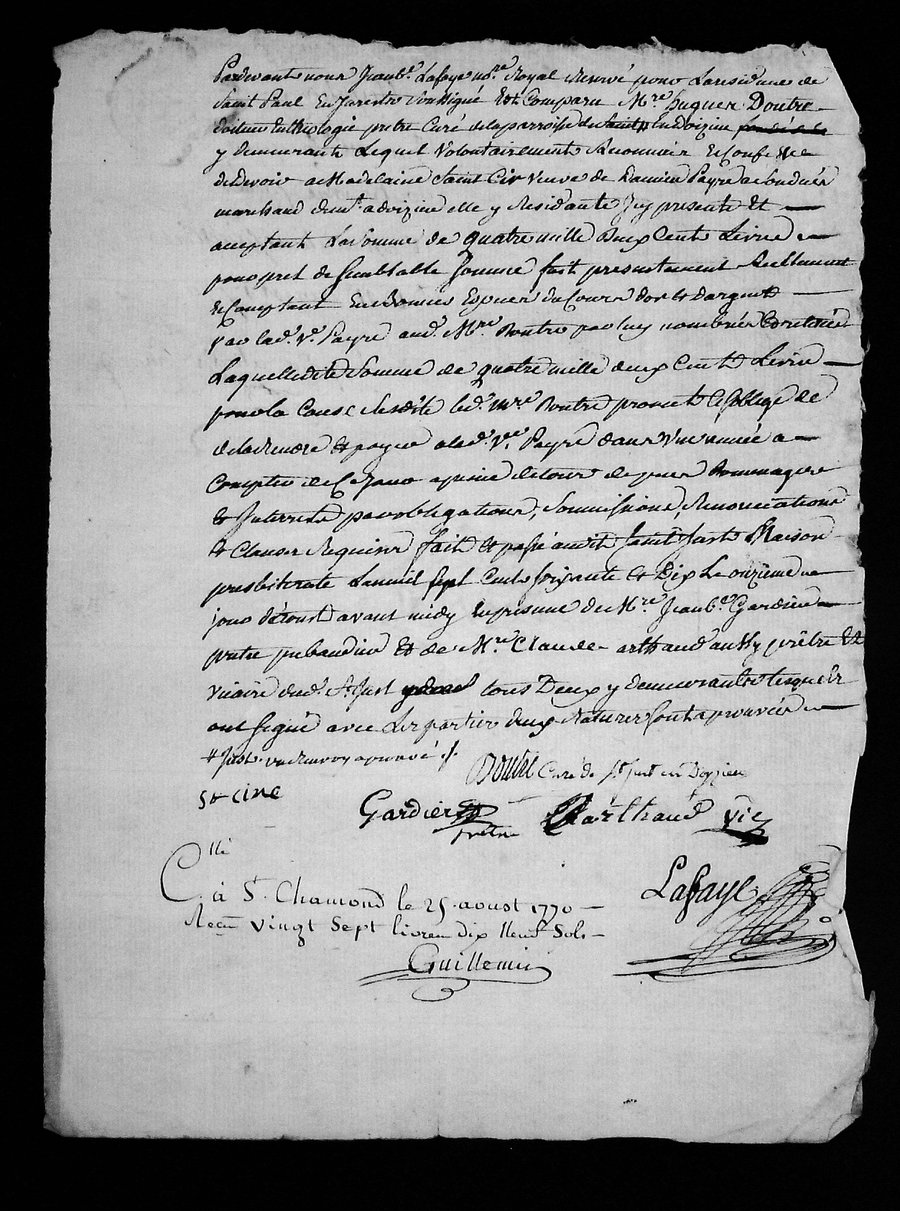 Pardevant nous Jean bte Lafaye nore Royal Reservé pour La residence de
Saint Paul En Jarestz Soussigné Est Comparu Mre huguer Doutre
docteur En theologie pretre Curé de la parroisse de Saint # En doizieu
y demeurante Lequel Volontairement a Reconnu et Confessé
devoir a Madelaine Saint Cir veuve de Damien Payre
marchand demt. a doizieu elle y Residante Icy presente Et
acceptant La Somme de quatre mille Deux Cents Livre
pour pret de Semblable Somme fait presentement Reellement
et Comptant En Bonnes Especes du Cours d'or et d'argent
par lad. Ve. Payre aud. Mre Doutre par luy nombrée Et retirée
Laquelle dite Somme de quatre mille deux Cents Livre
pour la Cause Susdite led. mre Doutre promet et S'oblige de
de la rendre et payer a lad. Ve. Payre dans Une année a
Compter de Ce jour a peine de tous depens Dommages
et Interests par obligations, Soumissions Renonciations
et Clauses Requises fait et passé audit Saint Just Maison
presbiterale L'an mil Sept Cents Soixante et Dix Le onzieme
jour d'aoust avant midy En presence de Mre Jean bte Gardier
pretre prebandier Et de Mre Claude arthaud aussy prêtre Et
vicaire dud. St Just tous Deux y demeurants Lesquels
ont Signé avec Les parties deux Ratures Sont aprouvées
# Just un renvoy aprouvé ./.
Doutre Curé de St Just en Doyzieu
St cire
Gardier prêtre Arthaud vic
Lafaye
C.lle
à St Chamond le 25 aoust 1770
Recu vingt Sept livres dix Neuf Sols
Guillemin